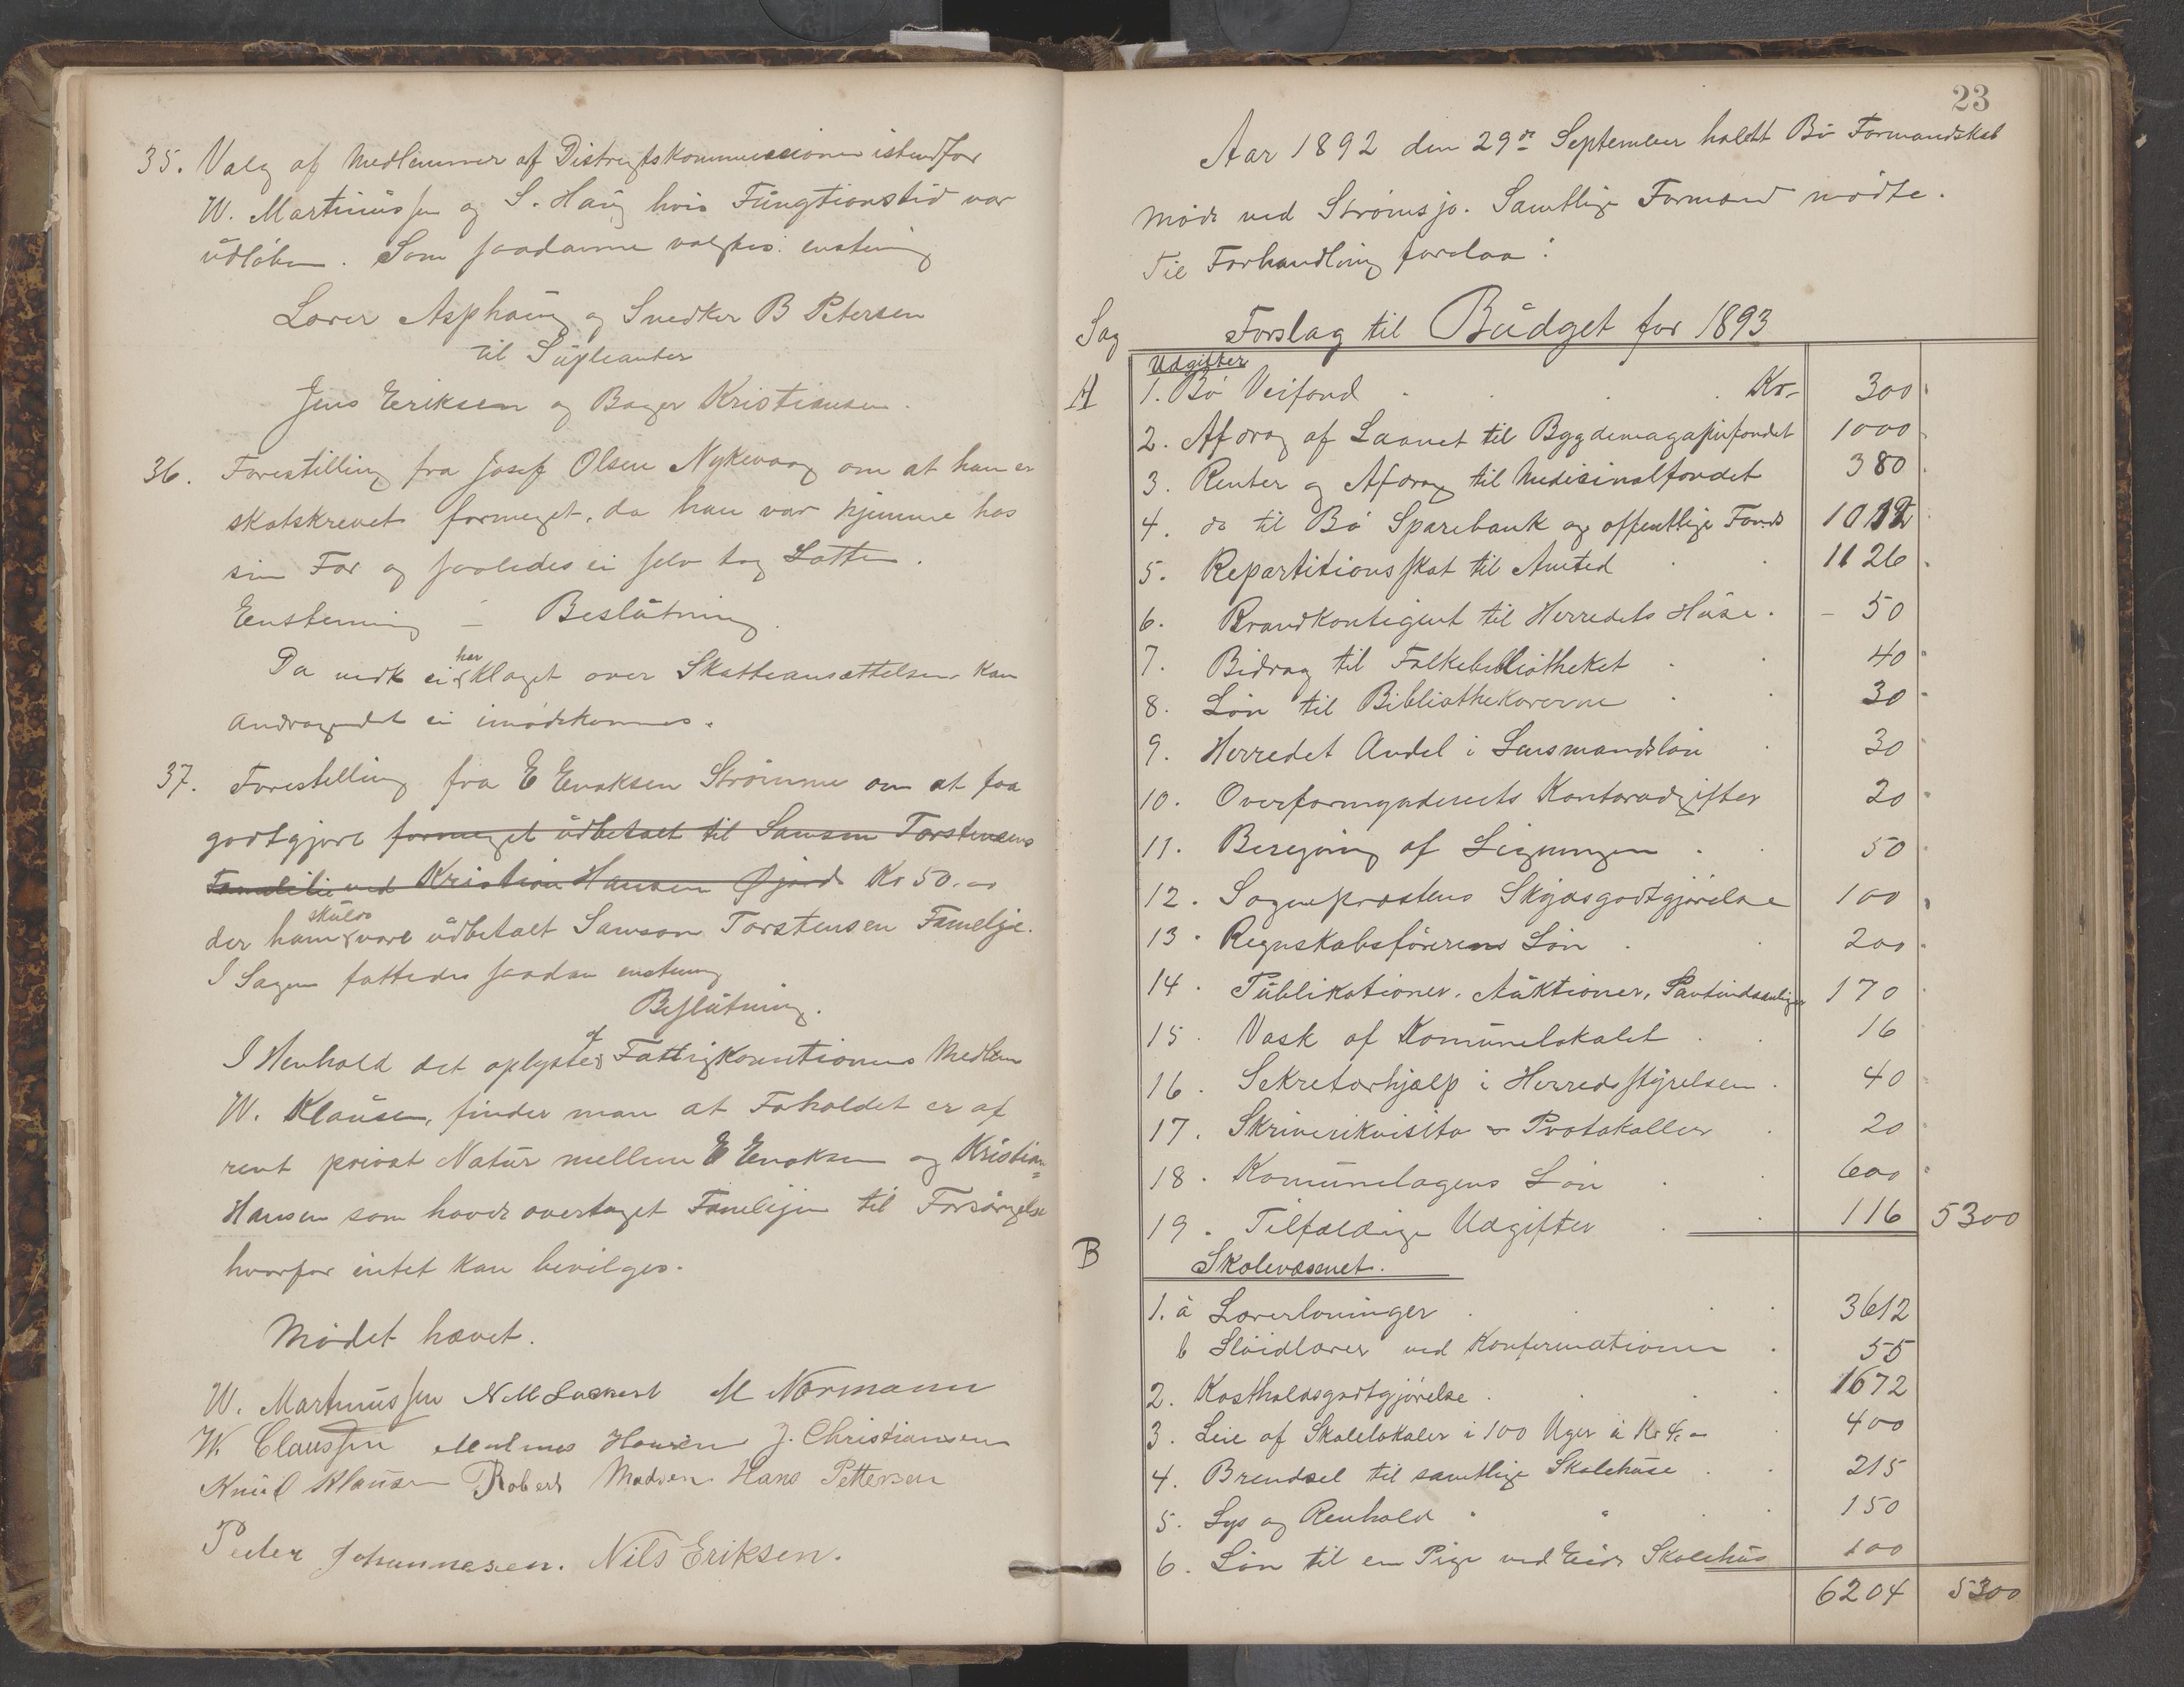 35. Valg af Medlemmer af Distrigtskommissionen istedfor
W. Martinussen og S. Haug hvis Fungtionstid var
udløben. Som saadanne valgtes enstemig
Lærer Asphaug og Snedker B Petersen
til Supleanter
Jens Eriksen og Bager Kristiansen.
36. Forestilling fra Josef Olsen Nykevaag om at han er
skatskrevet formeget, da han var hjemme hos
sin Far og saaledes ei selv tog Lotten.
Eenstemmig — Beslutning.
Da vedk ei har klaget over Skatteansættelsen kan
Andragendet ei imødekommes.
37. Forestilling fra E Enoksen Strømme om at faa
godtgjort formeget udbetalt til Samson Torstensens
Familie ved Kristian Hansen Øjord Kr 50.
der ham skulde være udbetalt Samson Torstensen Familje.
I Sagen fattedes saadan enstemig
Beslutning.
I Henhold det oplyste af Fattigkomitionens Medlem
W. Klausen, finder man at Foholdet er af
rent privat Natur mellem E Enoksen og Kristian
Hansen som havde overtaget Familjen til Forsørgelse
hvorfor intet kan bevilges.
Mødet hævet.
W. Martinussen N M Lockert M Normann
W Claussen Hansen J. Christiansen
Knud Klausen Robert Madsen Hans Pettersen
Peder Johannesen. Nils Eriksen.
23
Aar 1892 den 29de September holdt Bø Formandskab
Møde ved Strømsjo. Samtlige Formænd mødte.
Til Forhandling forelaa:
Sag Forslag til Budget for 1893
Udgifter
A 1. Bø Veifond Kr. 300
2. Afdrag af Laanet til Bygdemagasinfondet 1000
3. Renter og Afdrag til Medicinalfondet 380
4. do til Bø Sparebank og offentlige Fonds 1012
5. Repartitionsskat til Amted 1126
6. Brandkontigent til Herredets Huse. - 50
7. Bidrag til Folkebibliotheket 40
8. Løn til Bibliothekarerne 30
9. Herredet Andel i Lensmandsløn 30
10. Overformynderiets Kontorudgifter 20
11. Beregning af Ligningen 50
12. Sogneprestens Skydsgodtgjørelse 100
13. Regnskabsførerens Løn 200
14. Publikationer, Auktioner, 170
15. Vask af Komunelokalet 16
16. Sekretærhjælp i Herredsstyrelsen 40
17. Skriverikvisita & Protokoller 20
18. Komunelægens Løn 600
19. Tilfældige Udgifter 116 5300
B Skolevæsenet.
1. a Lærerlønninger 3612
b Sløidlærer ved Konfermationen 55
2. Kostholdsgodtgjørelse 1672
3. Leie af Skolelokaler i 100 Uger à Kr 4.- 400
4. Brendsel til samtlige Skolehuse 215
5. Lys og Renhold " " 150
6. Løn til en Pige ved Eids Skolehus 100
6204 5300